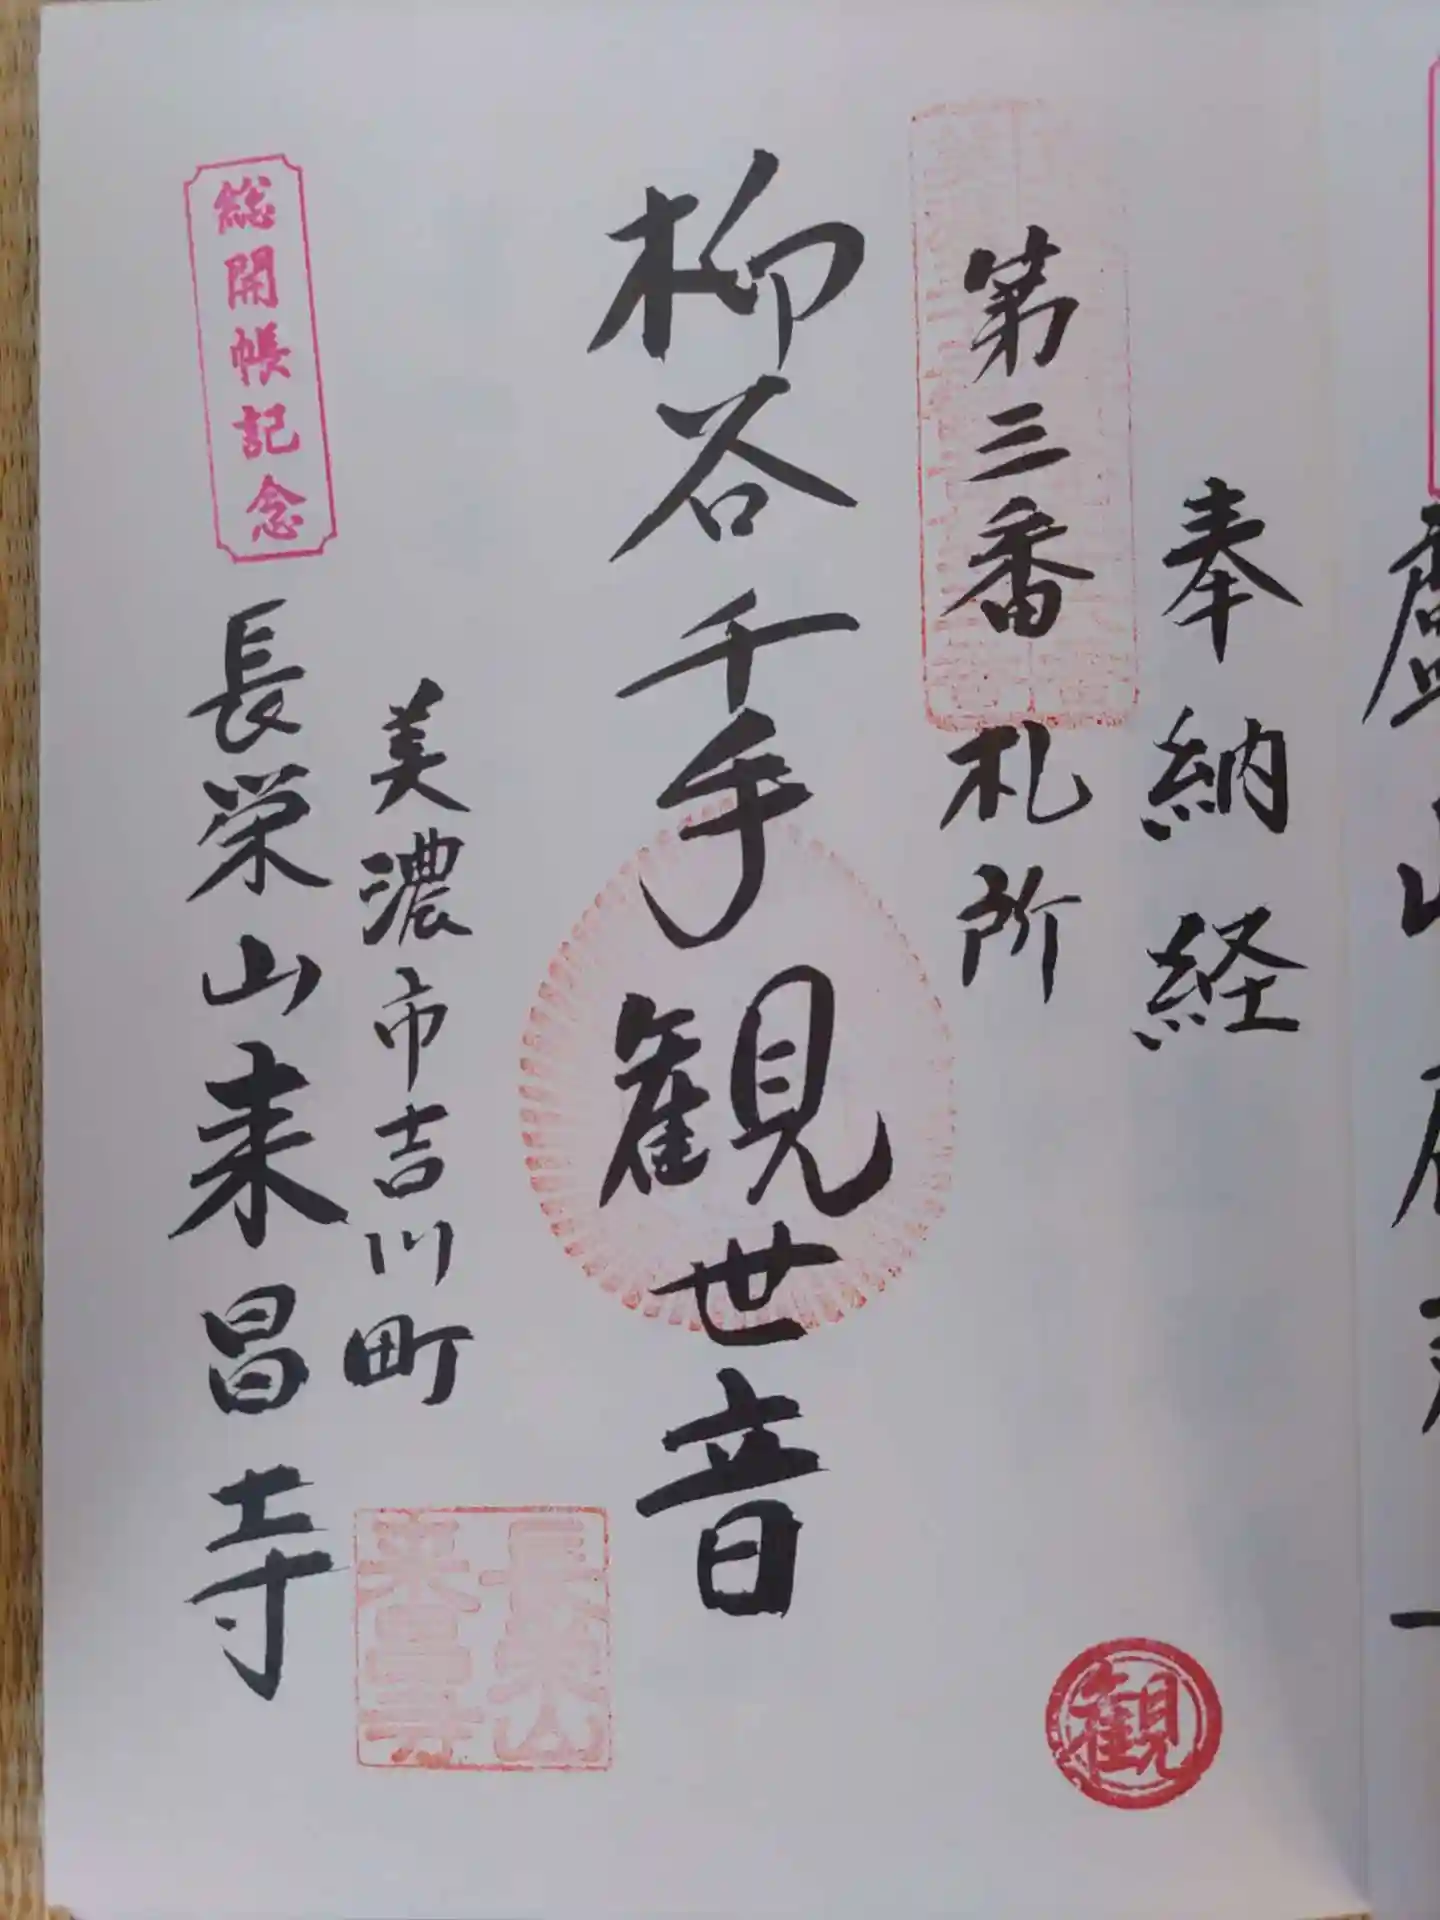 奉納経
第三番札所
柳谷千手観世音
美濃市吉川町
総開帳記念
長栄山来昌寺
長栄山
来昌寺
観